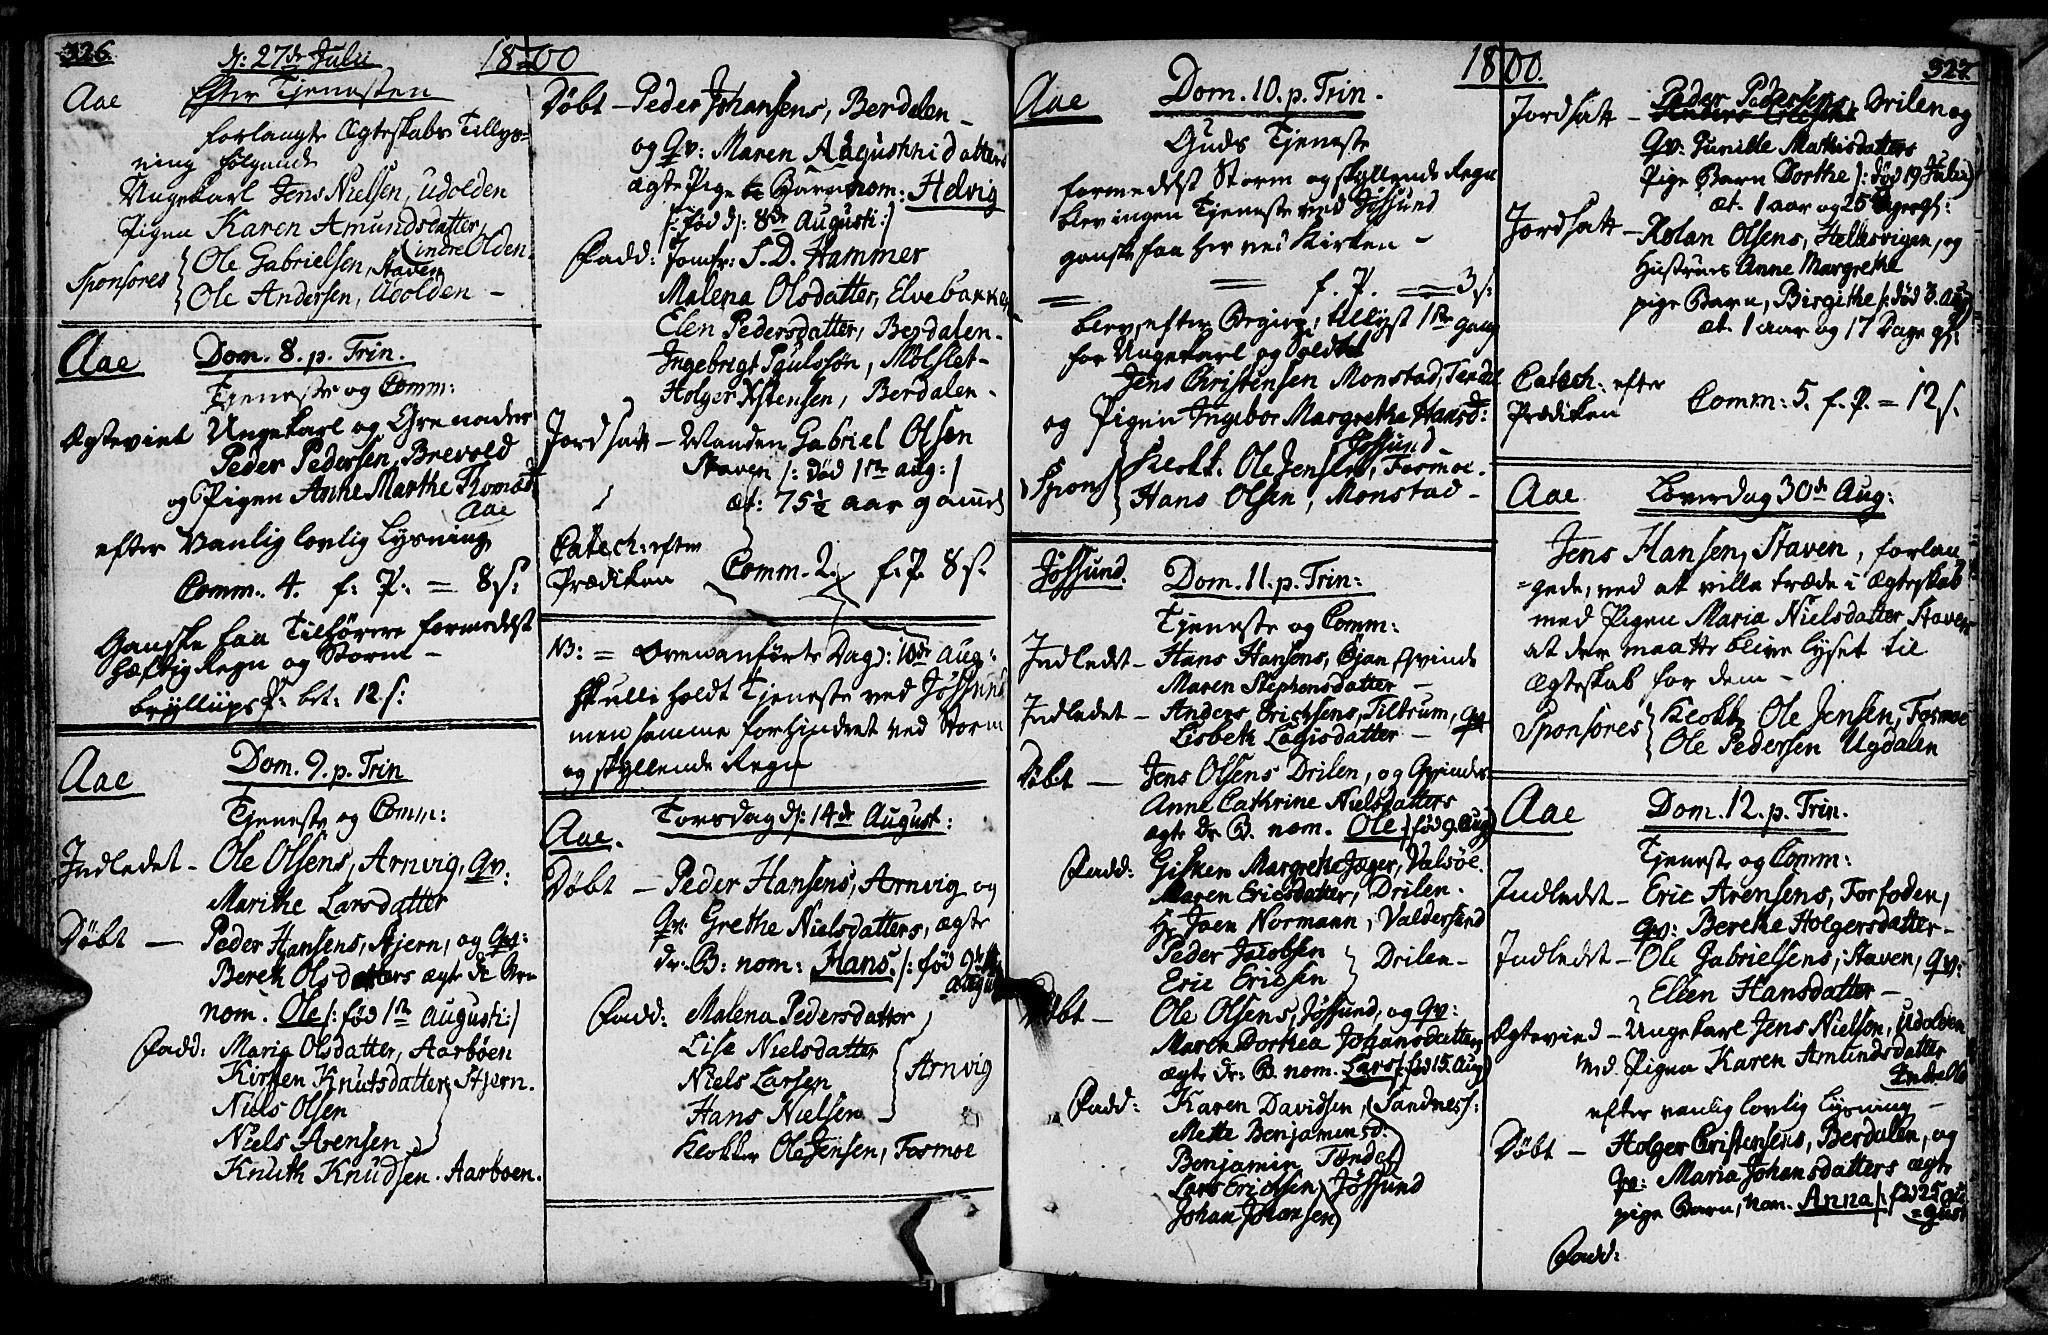 326.
1800
d: 27de Julii
Aae
Efter Tjenesten
forlangte Ægteskabs Tillys-
ning følgende
Ungekarl Jens Nielsen, Udolden
Pigen Karen Amundsdatter,
indre Olden.
Sponsores { Ole Gabrielsen, Staven
Ole Andersen, Udolden –
Aae
Dom. 8. p. Trin.
Tjeneste og Comm:
Ægteviet Ungekarl og Grenader
Peder Pedersen, Brevold
og Pigen Anne Marthe Thomæd
Aae
efter vanlig lovlig Lysning
Comm. 4. f: P: = 8 s:
Ganske faa Tilhørere formedelst
hæftig Regn og Storm –
bryllups P: bet: 12 s:
Aae
Dom. 9. p. Trin
Tjeneste og Comm:
Indledet – Ole Olsens, Arnvig, Qv:
Marithe Larsdatter
Døbt – Peder Hansens, Stjern, og Qv:
Bereth Olsdatters ægte
nom. Ole /: fød 1ste Augusti :/
Fadd: Maria Olsdatter, Aarbøen
Kirsten Knutsdatter, Stjern.
Niels Olsen
Niels Arensen
Knuth Knudsen. Aarboen.
Døbt – Peder Johansens, Berdalen –
og Qv: Maren Augustinidatters
ægte Pige Barn nom: Helvig
/: fød d: 8de Augusti :/
Fadd: Jomfr: S. D. Hammer
Malena Olsdatter, Elvebakken
Elen Pedersdatter, Berdalen.
Ingebrigt Paulssøn, Mølslet –
Holger Xstensen, Berdalen –
Jordsatt – Manden Gabriel Olsen
Staven /: død 1ste aug: /
æt: 75½ aar gammel
Catech: efter
Prædiken
Comm. 2. f. P. 8 s.
NB: = Ovenanførte Dag d: 10de Aug:
skulle holdt Tjeneste ved Jøssund
men samme forhindret ved Storm
og skyllende Regn
Aae.
Torsdag d: 14de August:
Døbt – Peder Hansens, Arnvig og
Qv: Grethe Nielsdatters, ægte
dr: B: nom: Hans. /: fød 9de
August
Fadd: Malena Pedersdatter
Lise Nielsdatter
Niels Larsen
Arnvig
Hans Nielsen
Klokker Ole Jensen, Fosmoe
1800.
327.
Aae
Dom. 10. p. Trin.
Guds Tjeneste
formedelst Storm og skyllende Regn
blev ingen Tjeneste ved Jøssund
ganske faa her ved Kirken –
= = f. P. = = 3 s:
blev, efter Begiær, tillyst 1ste gang
for Ungekarl og Soldat
Jens Christensen Monstad, Tendel
og Pigen Ingebor Margretha Hansd:
Jøssund
Spons { Klokk. Ole Jensen, Fosmoe.
Hans Olsen, Monstad –
Jøssund.
Dom. 11. p. Trin:
Tjeneste og Comm:
Indledet – Hans Hansens, Qvinde
Maren Stephensdatter –
Indledet – Anders Erichsens, Tiltrum, Qv
Lisbeth Lagisdatter –
Døbt – Jens Olsens Drilen, og Qvindes
Anne Cathrine Nielsdatters
ægte dr. B. nom. Ole /: fød 9. Aug /
Fadd: Gisken Margrethe Jæger, Valsøe.
Maren Ericsdatter, Drilen.
Hr Joen Normann, Valdersund
Peder Jacobsen
Drilen –
Eric Ericsen
Døbt – Ole Olsens, Jøssund, og Qv:
Maren Dorthea Johansdatters
ægte dr: B. nom. Lars /: fød 15. Aug /
Fadd: Karen Davidsen, Sandness:
Mette Benjaminsd:
Benjamin Tønder
Lars Erichsen Jøssund
Johan Johansen
Jordsatt – Peder Pedersens, Drilen og
Qv: Gunille Mathisdatters
Pige Barn Dorthe /: død 19 Julii /
æt. 1 aar og 25
Jordsatt – Rolan Olsens, Helksvigen, og
Hustrues Anne Margrethe
pige Barn, Birgithe /: død 3. Aug /
æt. 1 aar og 17 Dage gl:
Catech: efter
Prædiken
Comm: 5. f. P. = 12 s.
Aae
Løverdag 30de Aug:
Jens Hansen, Staven, forlan
=gede, ved at ville træde i Ægteskab
med Pigen Maria Nielsdatter Staven
at der maatte blive lyset til
Ægteskab for dem –
Sponsores { Klokk Ole Jensen, Fosmoe
Ole Pedersen Ugdalen
Aae
Dom. 12. p. Trin.
Tjeneste og Comm:
Indledet – Eric Arensens, Forfoden,
Qv: Berethe Holgersdatter –
Indledet – Ole Gabrielsens, Staven, Qv:
Elien Hansdatter –
Ægtevied – Ungekarl Jens Nielsen, Udolden
Md. Pigen Karen Amundsdatter
Indre Old
efter vanlig lovlig Lysning –
Døbt – Holger Cristensens, Berdalen, og
Qv: Maria Johansdatters ægte
pige Barn, nom. Anna /: fød 25 au
=gust
Fadd: